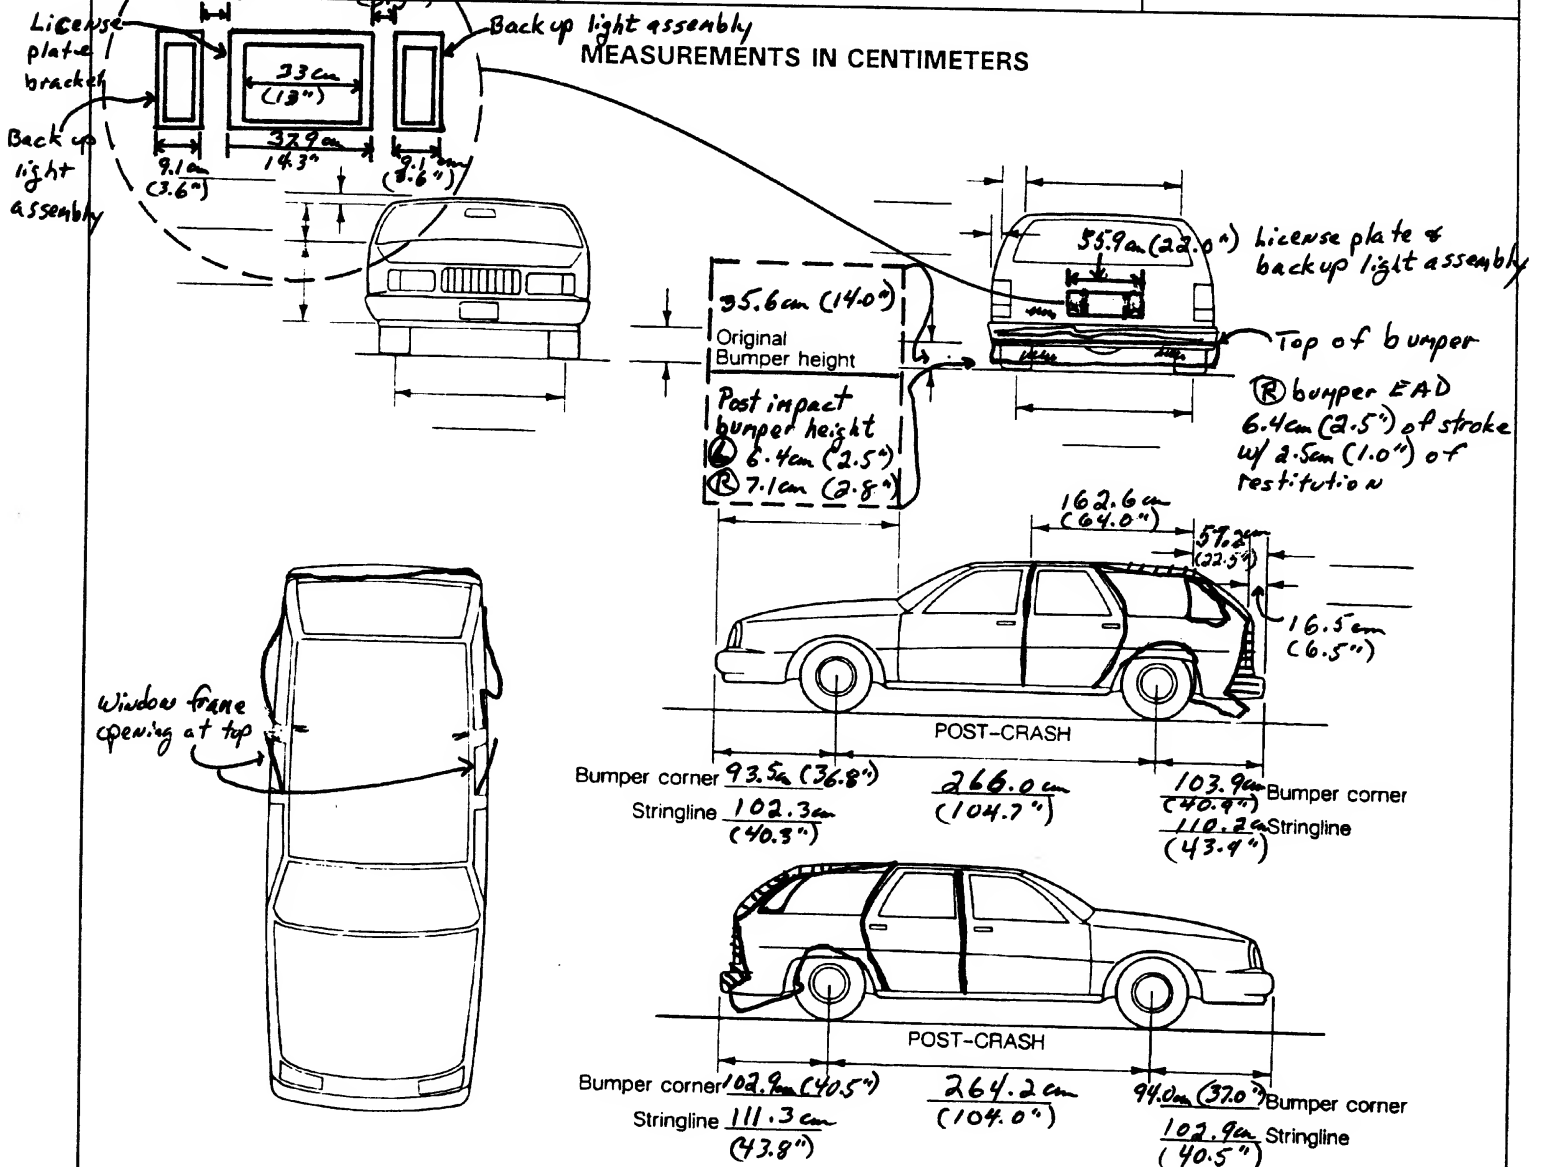 License
plate
bracket
Back up light assembly
MEASUREMENTS IN CENTIMETERS
33 cm
(13")
Back up
light
assembly
9.1 cm
(3.6")
37.9 cm
14.3"
9.1 cm
(3.6")
55.9 cm (22.0")
License plate &
backup light assembly
35.6 cm (14.0")
Original
Bumper height
Post impact
bumper height
Ⓛ 6.4 cm (2.5")
Ⓡ 7.1 cm (2.8")
Top of bumper
Ⓡ bumper EAD
6.4 cm (2.5") of stroke
w/ 2.5 cm (1.0") of
restitution
162.6 cm
(64.0")
(22.5")
16.5 cm
(6.5")
Window frame
opening at top
POST-CRASH
Bumper corner 93.5 cm (36.8")
Stringline 102.3 cm
(40.3")
266.0 cm
(104.7")
103.9 cm Bumper corner
(40.9")
110.2 cm Stringline
(43.4")
POST-CRASH
Bumper corner 102.9 cm (40.5")
Stringline 111.3 cm
(43.8")
264.2 cm
(104.0")
94.0 cm (37.0") Bumper corner
102.9 cm Stringline
(40.5")